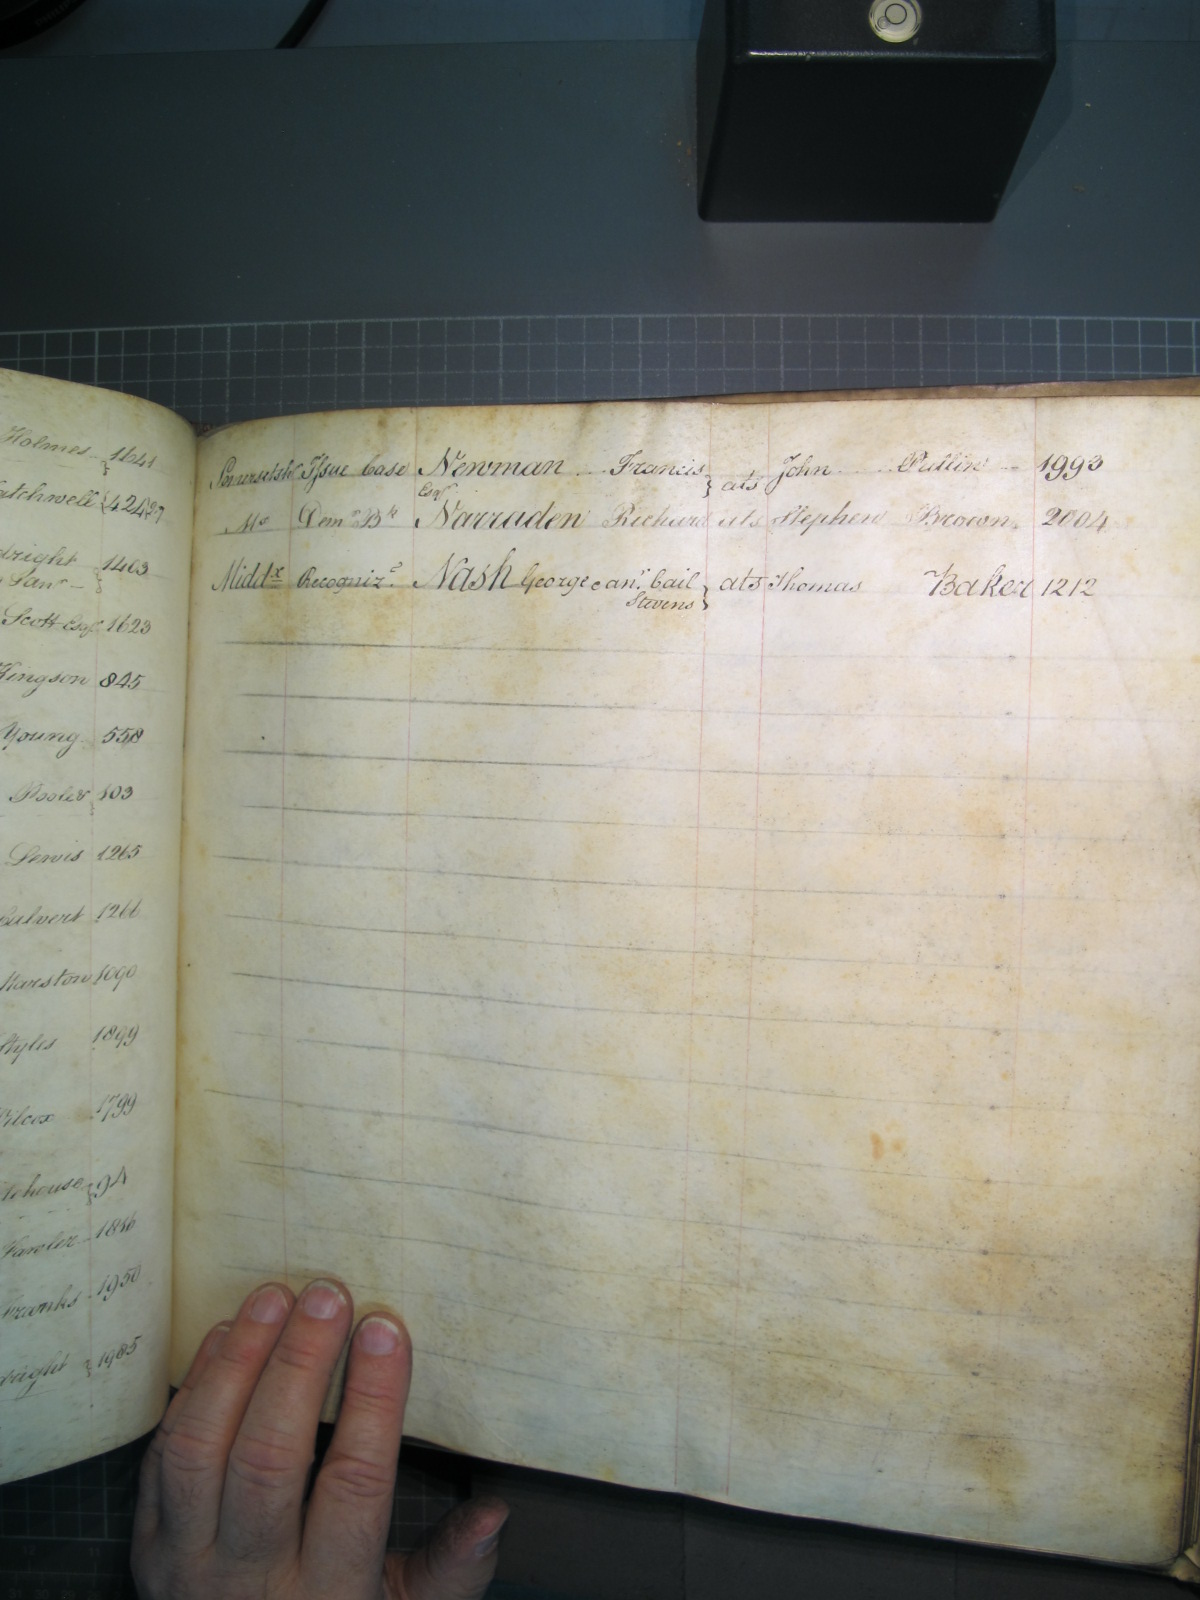 Holmes 1641
atchwell 424
wright 1403
Scott Esqr 1623
Kingson 845
Young 558
Pooler 103
Lewis 1265
Culvert 1266
Marston 1090
Styles 1899
Wilcox 1799
house 94
Fawler 1856
Franks 1950
wright 1985
Somersetshr Issue Case Newman Francis Esqr } ats John Pullin 1993
Mx Demr Bk Narraden Richard ats Stephen Brown 2004
Middx Recognize Nash George an. bail ats Thomas Baker 1212
Stevens